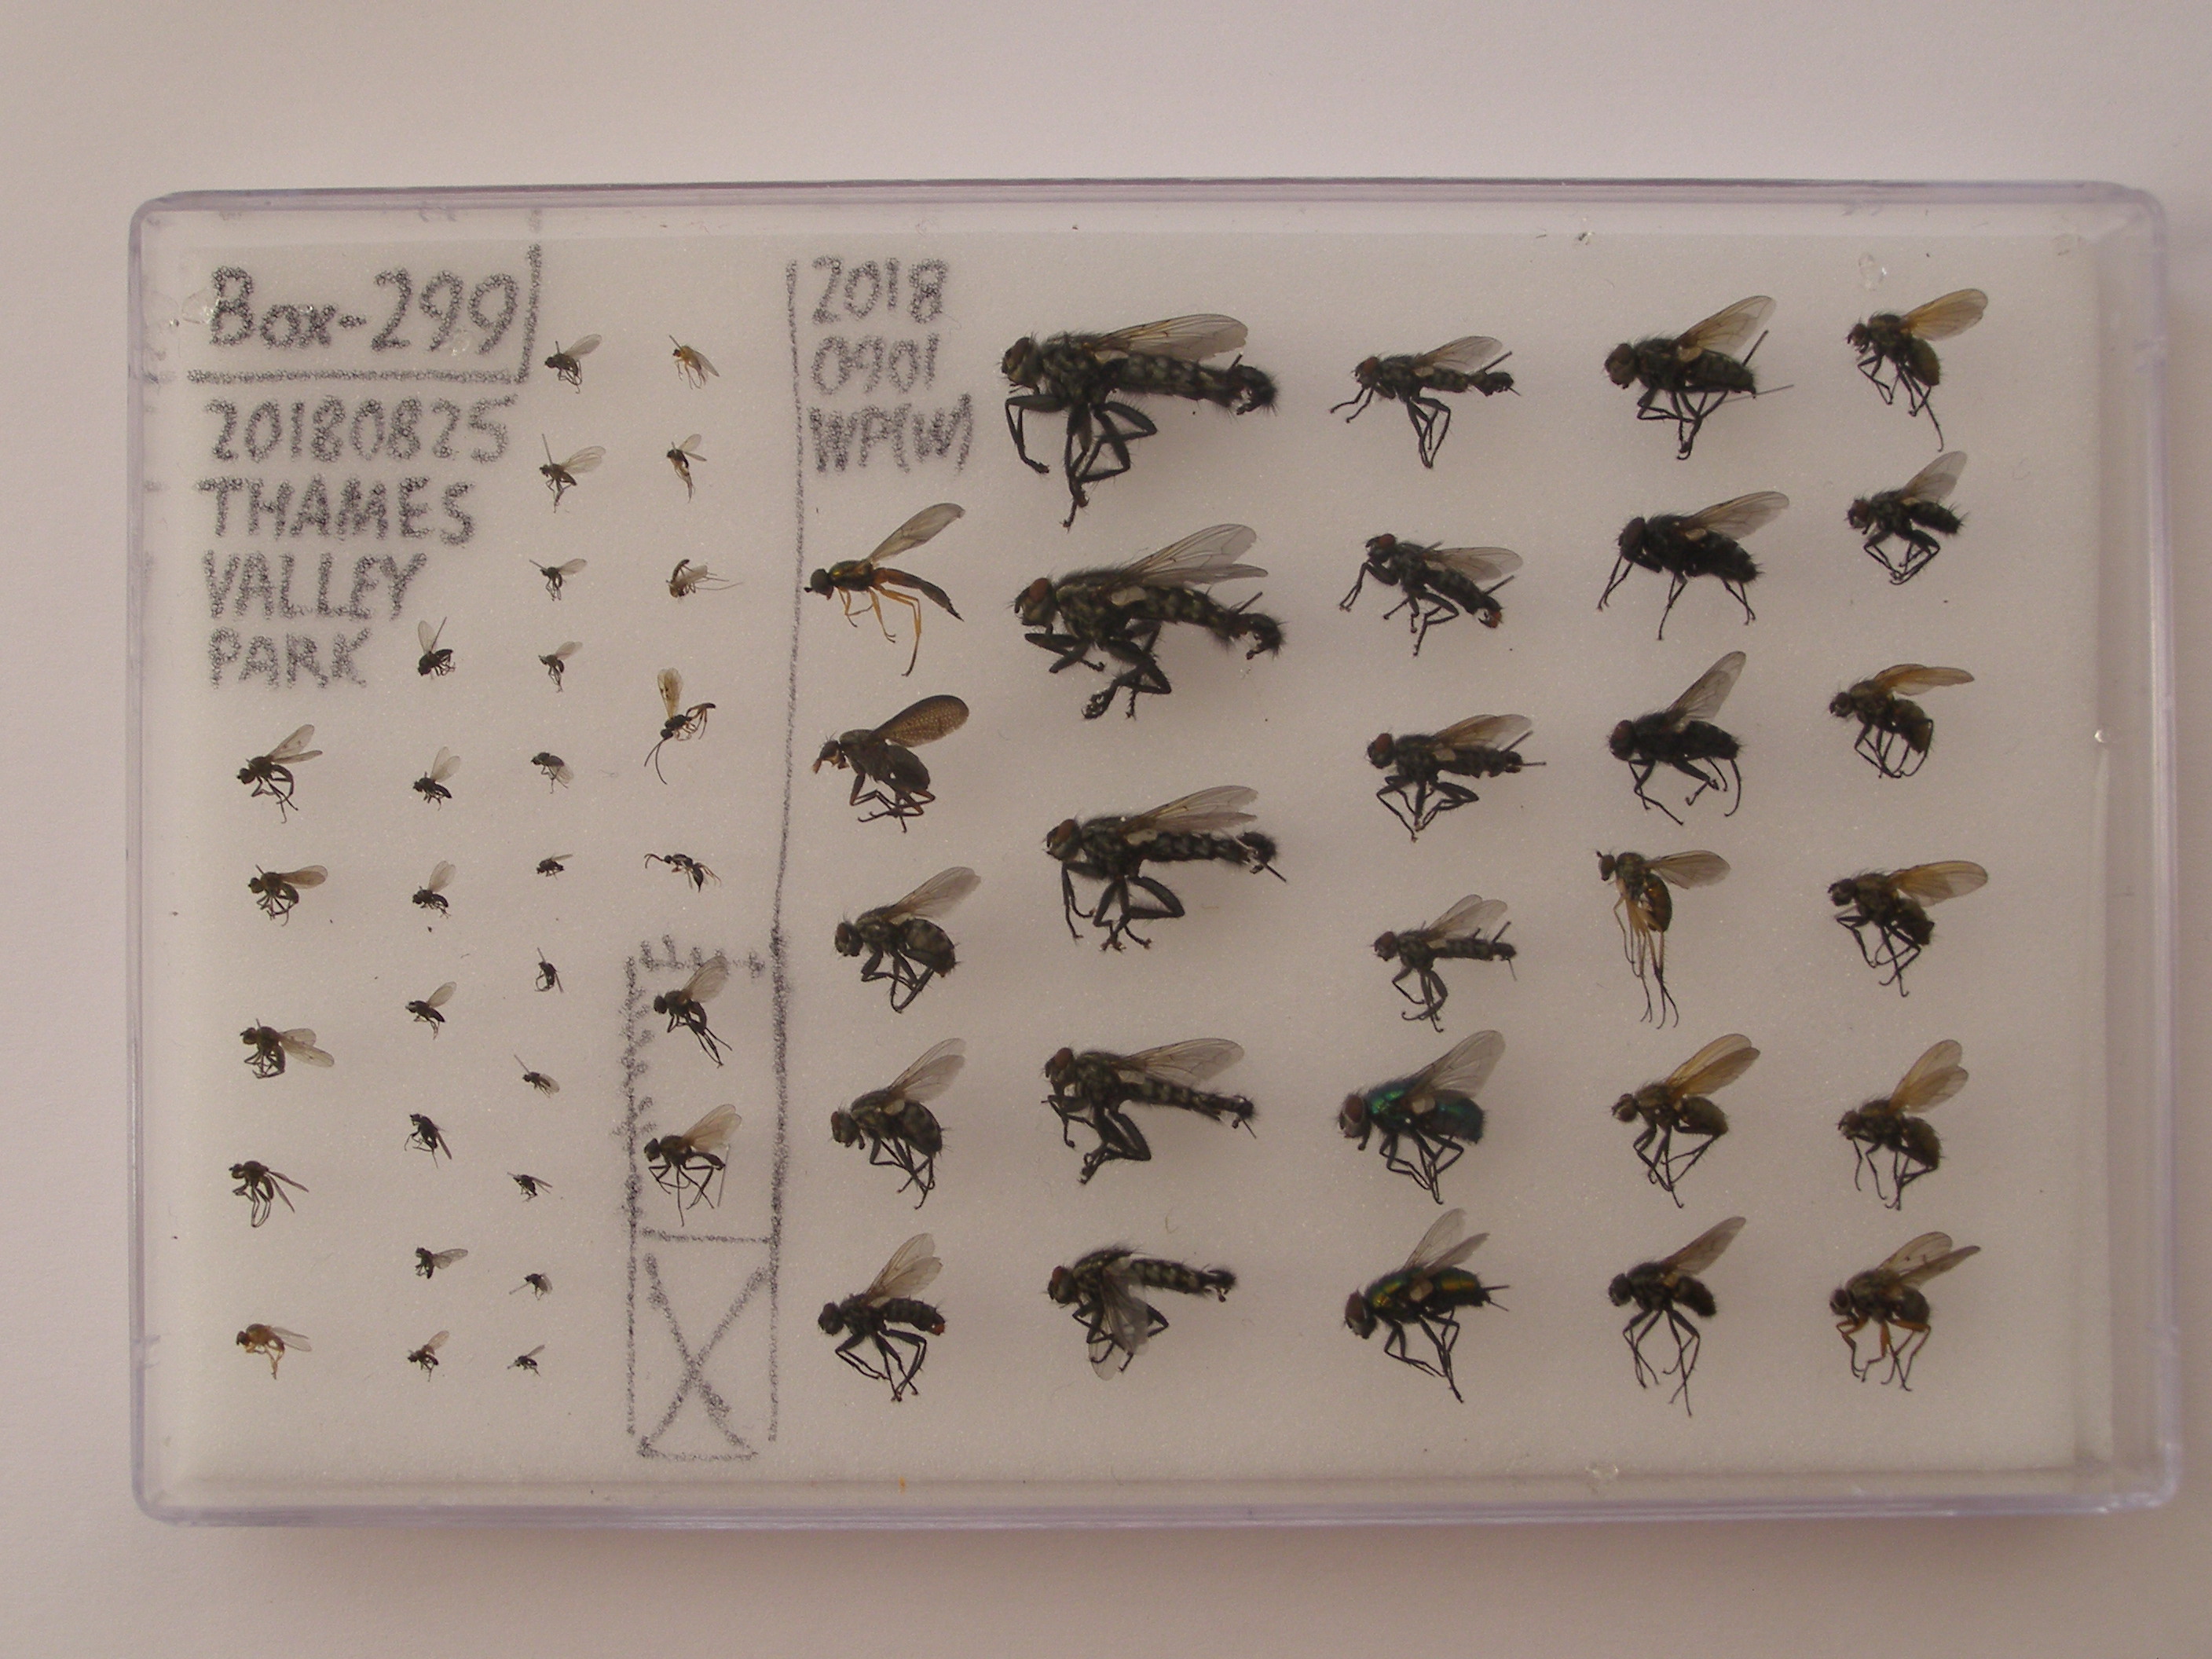 Box-299
20180825
THAMES
VALLEY
PARK
2018
0901
WP(W)